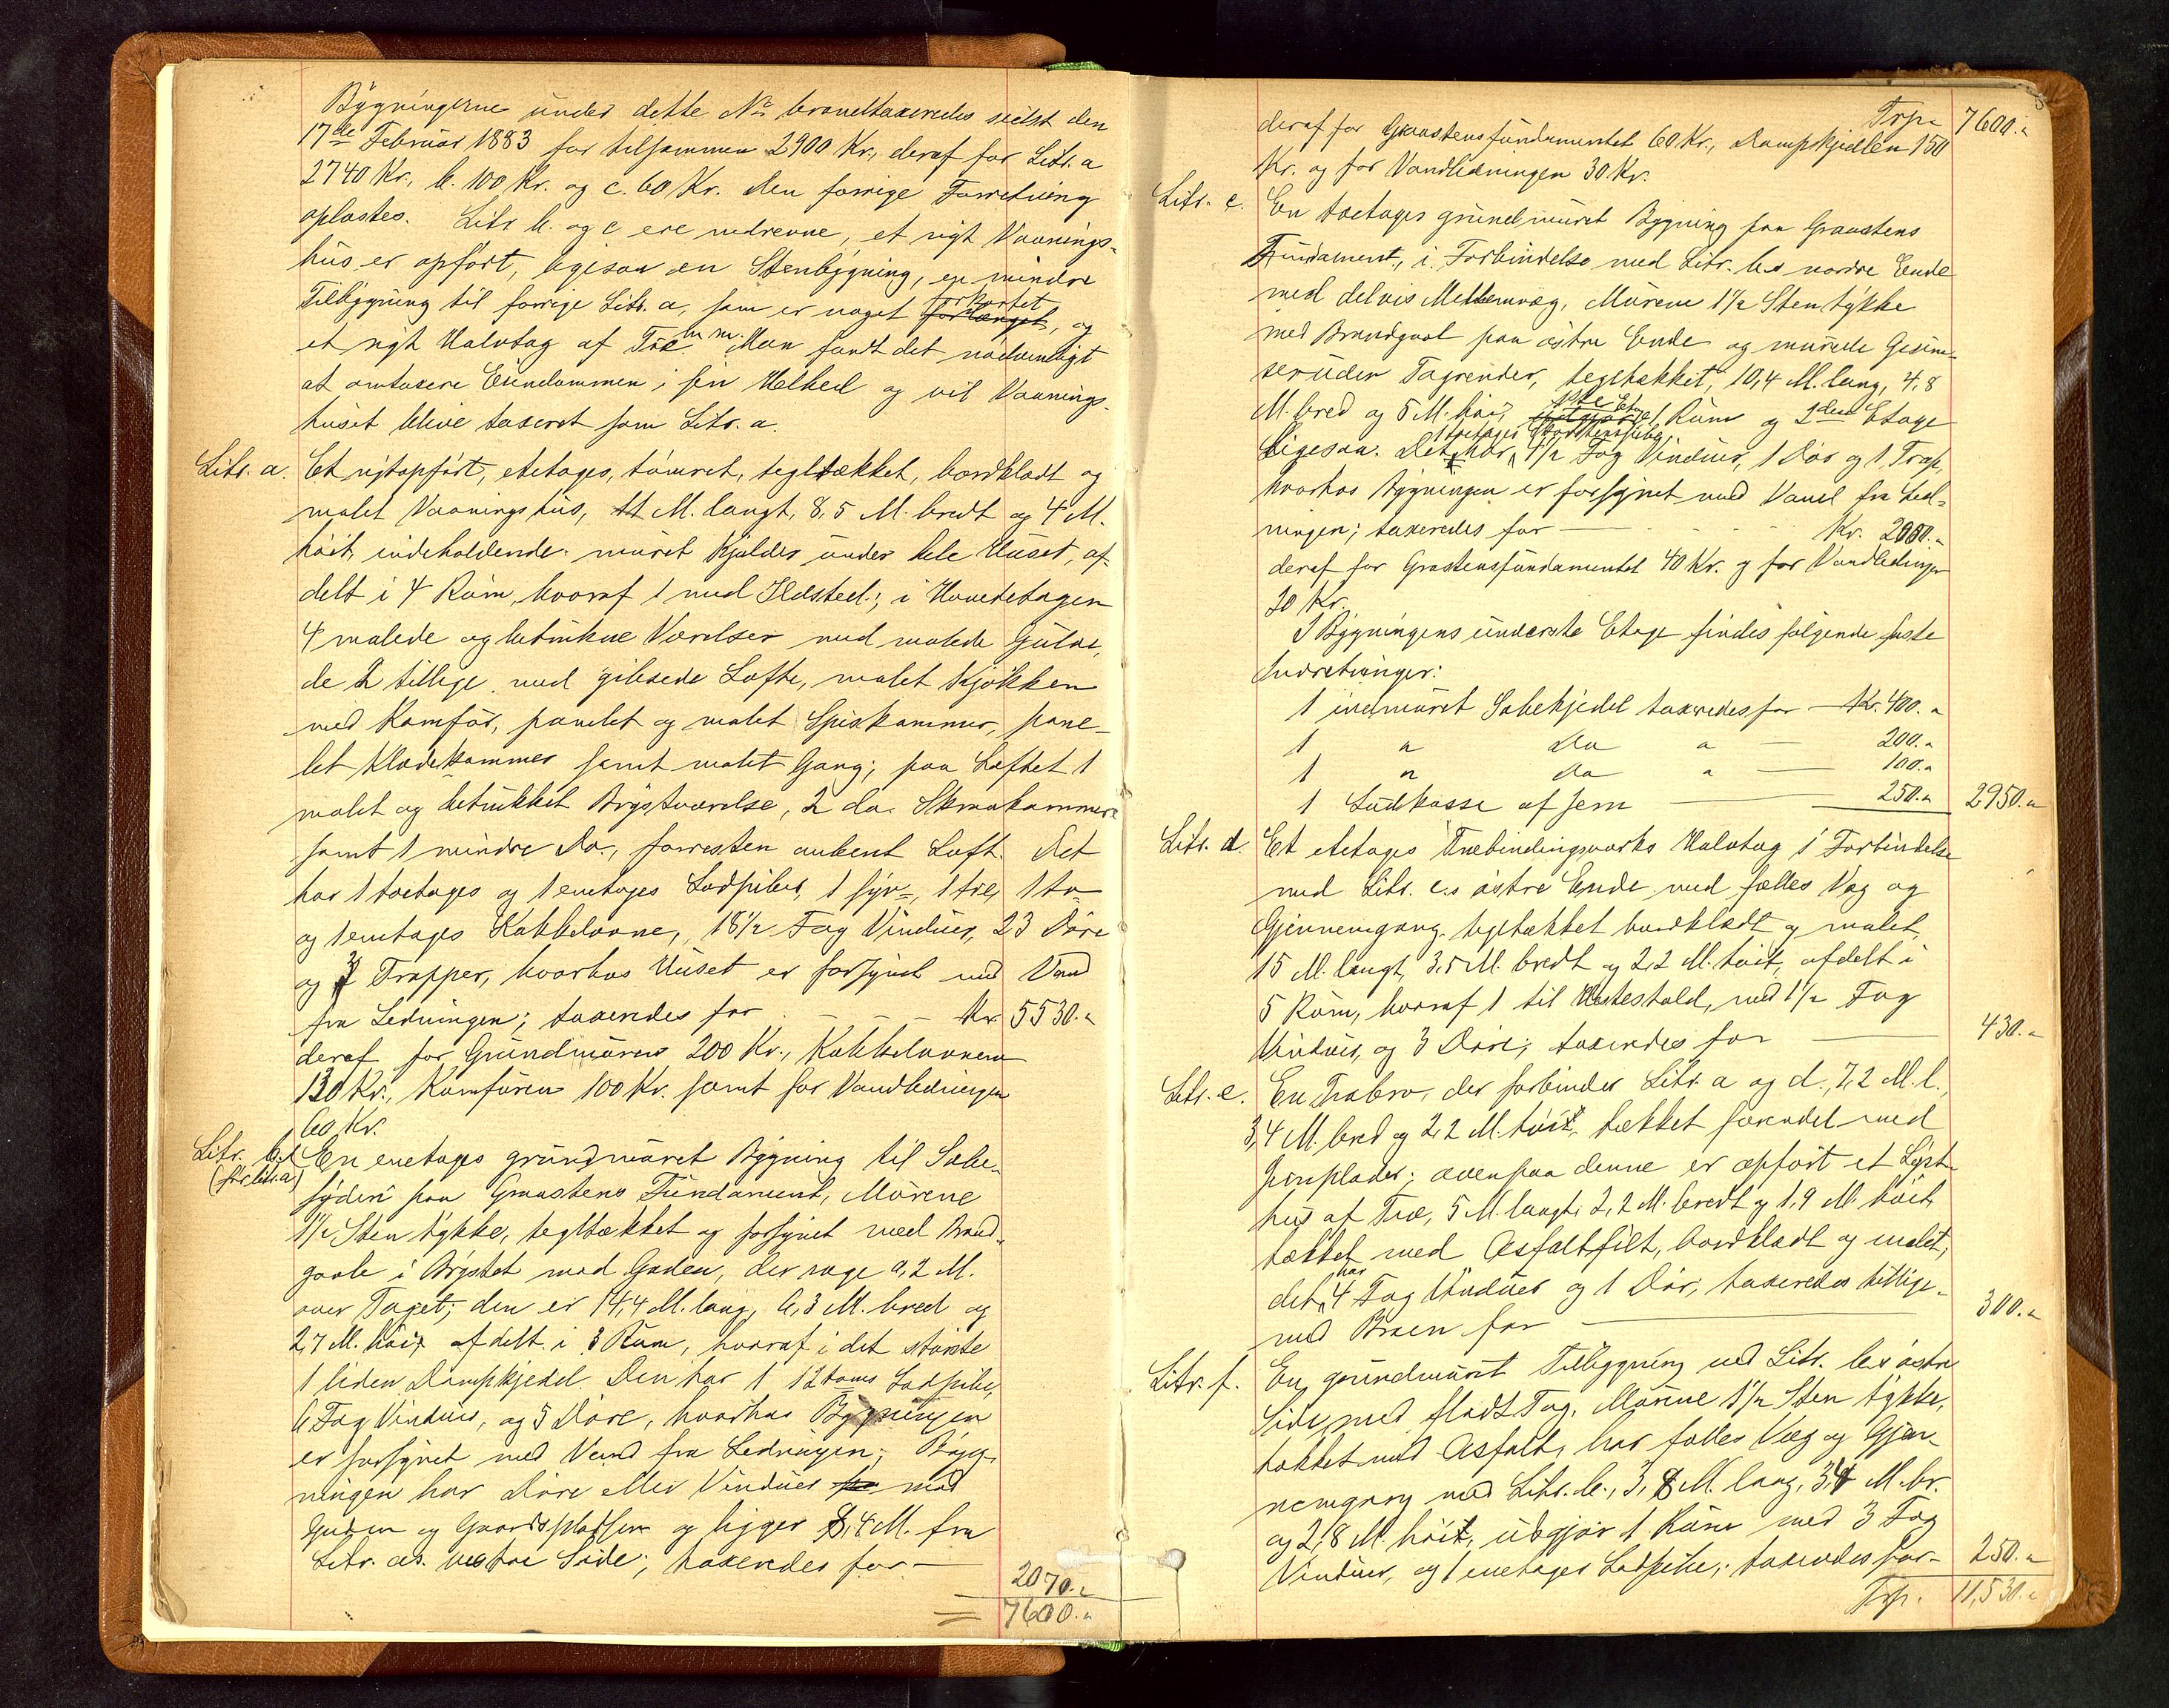 Bygningerne under dette No brandtaxeredes sidst den
17de Februar 1883 for tilsammen 2900 Kr., deraf for Litr. a
2740 Kr., b. 100 Kr. og c. 60 Kr. Den forrige Forretning
oplæstes. Litr b. og c ere nedrevne, et nyt Vaanings-
hus er opført, ligesaa en Stenbygning, en mindre
Tilbygning til forrige Litr. a, som er noget forkortet, og
et nyt Halvtag af Træ m. m. Man fandt det nødvendigt
at omtaxere Eiendommen i sin Helhed og vil Vaanings-
huset blive taxeret som Litr. a.
Litr. a. Et nytopført, etetages, tømret, tegltækket, bordklædt og
malet Vaaningshus, 11 M. langt, 8,5 M. bredt og 4 M.
høit, indeholdende: muret Kjælder under hele Huset, af-
delt i 4 Rum, hvoraf 1 med Ildsted; i Hovedetagen
4 malede og betrukne Værelser med malede Gulve,
de 2 tillige med gibsede Lofte, malet Kjøkken
med Komfur, panelet og malet Spiskammer, pane-
let Klædekammer samt malet Gang; paa Loftet 1
malet og betrukket Brystværelse, 2 do. Skraakammere
samt 1 mindre do., forresten aabent Loft. Det
har 1 toetages og 1 enetages Lodpibe, 1 fyr-, 1 tre, 1 to-
og 1 enetages Kakkelovne, 18½ Fag Vinduer, 23 Døre
og 3 Trapper, hvorhos Huset er forsynet med Vand
fra Ledningen; taxeredes for — — — Kr. 5530."
deraf for Grundmuren 200 Kr., Kakkelovnene
130 Kr., Komfuren 100 Kr. samt for Vandledningen
60 Kr.
Litr. b. En enetages grundmuret Bygning til Sæbe-
(før litr. a) syderi paa Graastens Fundament, Murene
1½ Sten tykke, tegltækket og forsynet med Brand-
gavle i Brystet mod Gaden, der rage 0,2 M.
over Taget; den er 14,4 M. lang, 6,3 M. bred og
2,7 M. høi, afdelt i 3 Rum, hvoraf i det største
1 liden Dampkjedel. Den har 1 12 toms Lodpibe,
6 Fag Vinduer, og 5 Døre, hvorhos Bygningen
er forsynet med Vand fra Ledningen; Byg-
ningen har Døre eller Vinduer mod
Gaden og Gaardspladsen og ligger 8,4 M. fra
Litr. a.s vestre Side; taxeredes for — 2070."
= 7600."
Trp. 7600."
deraf for Graastensfundamentet 60 Kr., Dampkjedlen 150
Kr. og for Vandledningen 30 Kr.
Litr. c. En toetages grundmuret Bygning paa Graastens
Fundament, i Forbindelse med Litr. b.s nordre Ende
med delvis Mellemvæg, Murene 1½ Sten tykke
med Brandgavl paa østre Ende og murede Gesim-
ser uden Tagrender, tegltækket, 10,4 M. lang, 4,8
M. bred og 5 M. høi, 1ste Et. 1 Rum og 2den Etage
ligesaa. Det har 1 toetages Skorstenspibe, 4½ Fag Vinduer, 1 Dør og 1 Trap.,
hvorhos Bygningen er forsynet med Vand fra Led-
ningen; taxeredes for — Kr. 2000."
deraf for Grastensfundamentet 40 Kr. og for Vandledningen
30 Kr.
I Bygningens underste Etage findes følgende faste
Indretninger:
1 indmuret Sæbekjedel taxeredes for — Kr. 400."
1 " do " — 200."
1 " do " — 100."
1 Ludkasse af Jern — 250." 2950."
Litr. d. Et etetages Træbindingsværks Halvtag i Forbindelse
med Litr. c.s østre Ende med fælles Væg og
Gjennemgang, tegltækket bordklædt og malet,
15 M. langt, 3,5 M. bredt og 2,2 M. høit, afdelt i
5 Rum, hvoraf 1 til Hestestald, med 1½ Fag
Vinduer, og 3 Døre; taxeredes for — 430."
Litr. e. En Træbro, der forbinder Litr. a og d., 7,2 M. l.,
3,4 M. bred og 2,2 M. høi, tækket forendel med
Jernplader; ovenpaa denne er opført et Lyst-
hus af Træ, 5 M. langt, 2,2 M. bredt og 1,9 M. høit,
tækket med Asfaltfilt, bordklædt og malet;
det har 4 Fag Vinduer og 1 Dør; taxeredes tillige-
med Broen for — 300."
Litr. f. En grundmuret Tilbygning ved Litr. b.s østre
Side, med fladt Tag, Murene 1½ Sten tykke,
tækket med Asfalt, har fælles Væg og Gjen-
nemgang med Litr. b., 3,8 M. lang, 3,4 M. br.
og 2,8 M. høi, udgjør 1 Rum med 3 Fag
Vinduer, og 1 enetages Lodpibe; taxeredes for — 250."
Trp. 11,530."